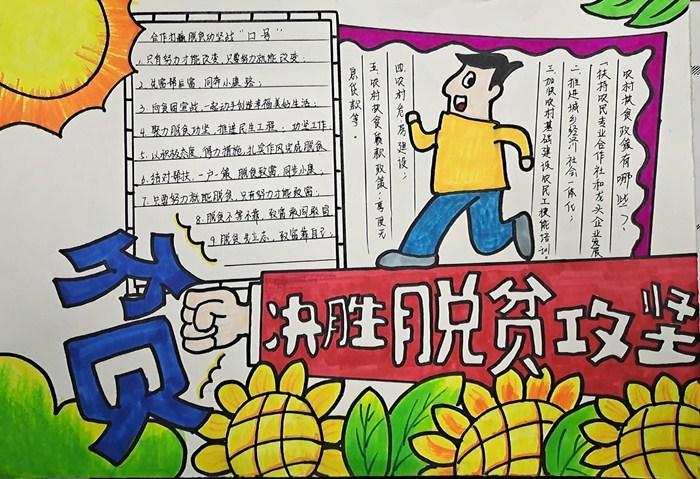 合作打赢脱贫功坚战"口号"
1. 只有努力才能改变，只要努力就能改变。
2. 先富帮后富，同奔小康路；
3. 向贫困宣战，一起动手创造幸福美好生活；
4. 聚力脱贫功坚，推进民生工程，功坚工作
5. 以积极态度，得力措施，扎实作风完成脱贫
6. 结对帮扶，一户一策，脱贫致富，同步小康；
7. 只要努力就能脱贫，只有努力才能致富；
8. 脱贫不等不靠，致富敢闯敢冒
9. 脱贫先立志，致富靠自己；
农村扶贫政策有哪些？
一、扶持农民专业合作社和龙头企业发展
二、推进城乡经济社会一体化；
三、加快农村基础建设，农民工技能培训
四、农村危房建设；
五、农村扶贫贷款政策：享受无
息贷款等。
贫
决胜脱贫攻坚